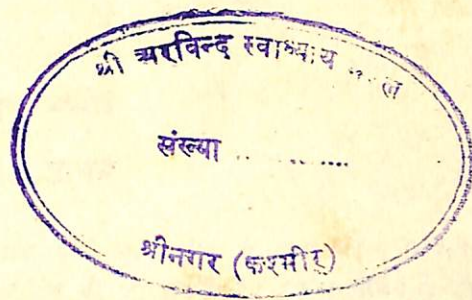 श्री अरविन्द स्वाध्याय
संख्या .. ......
श्रीनगर (कश्मीर)